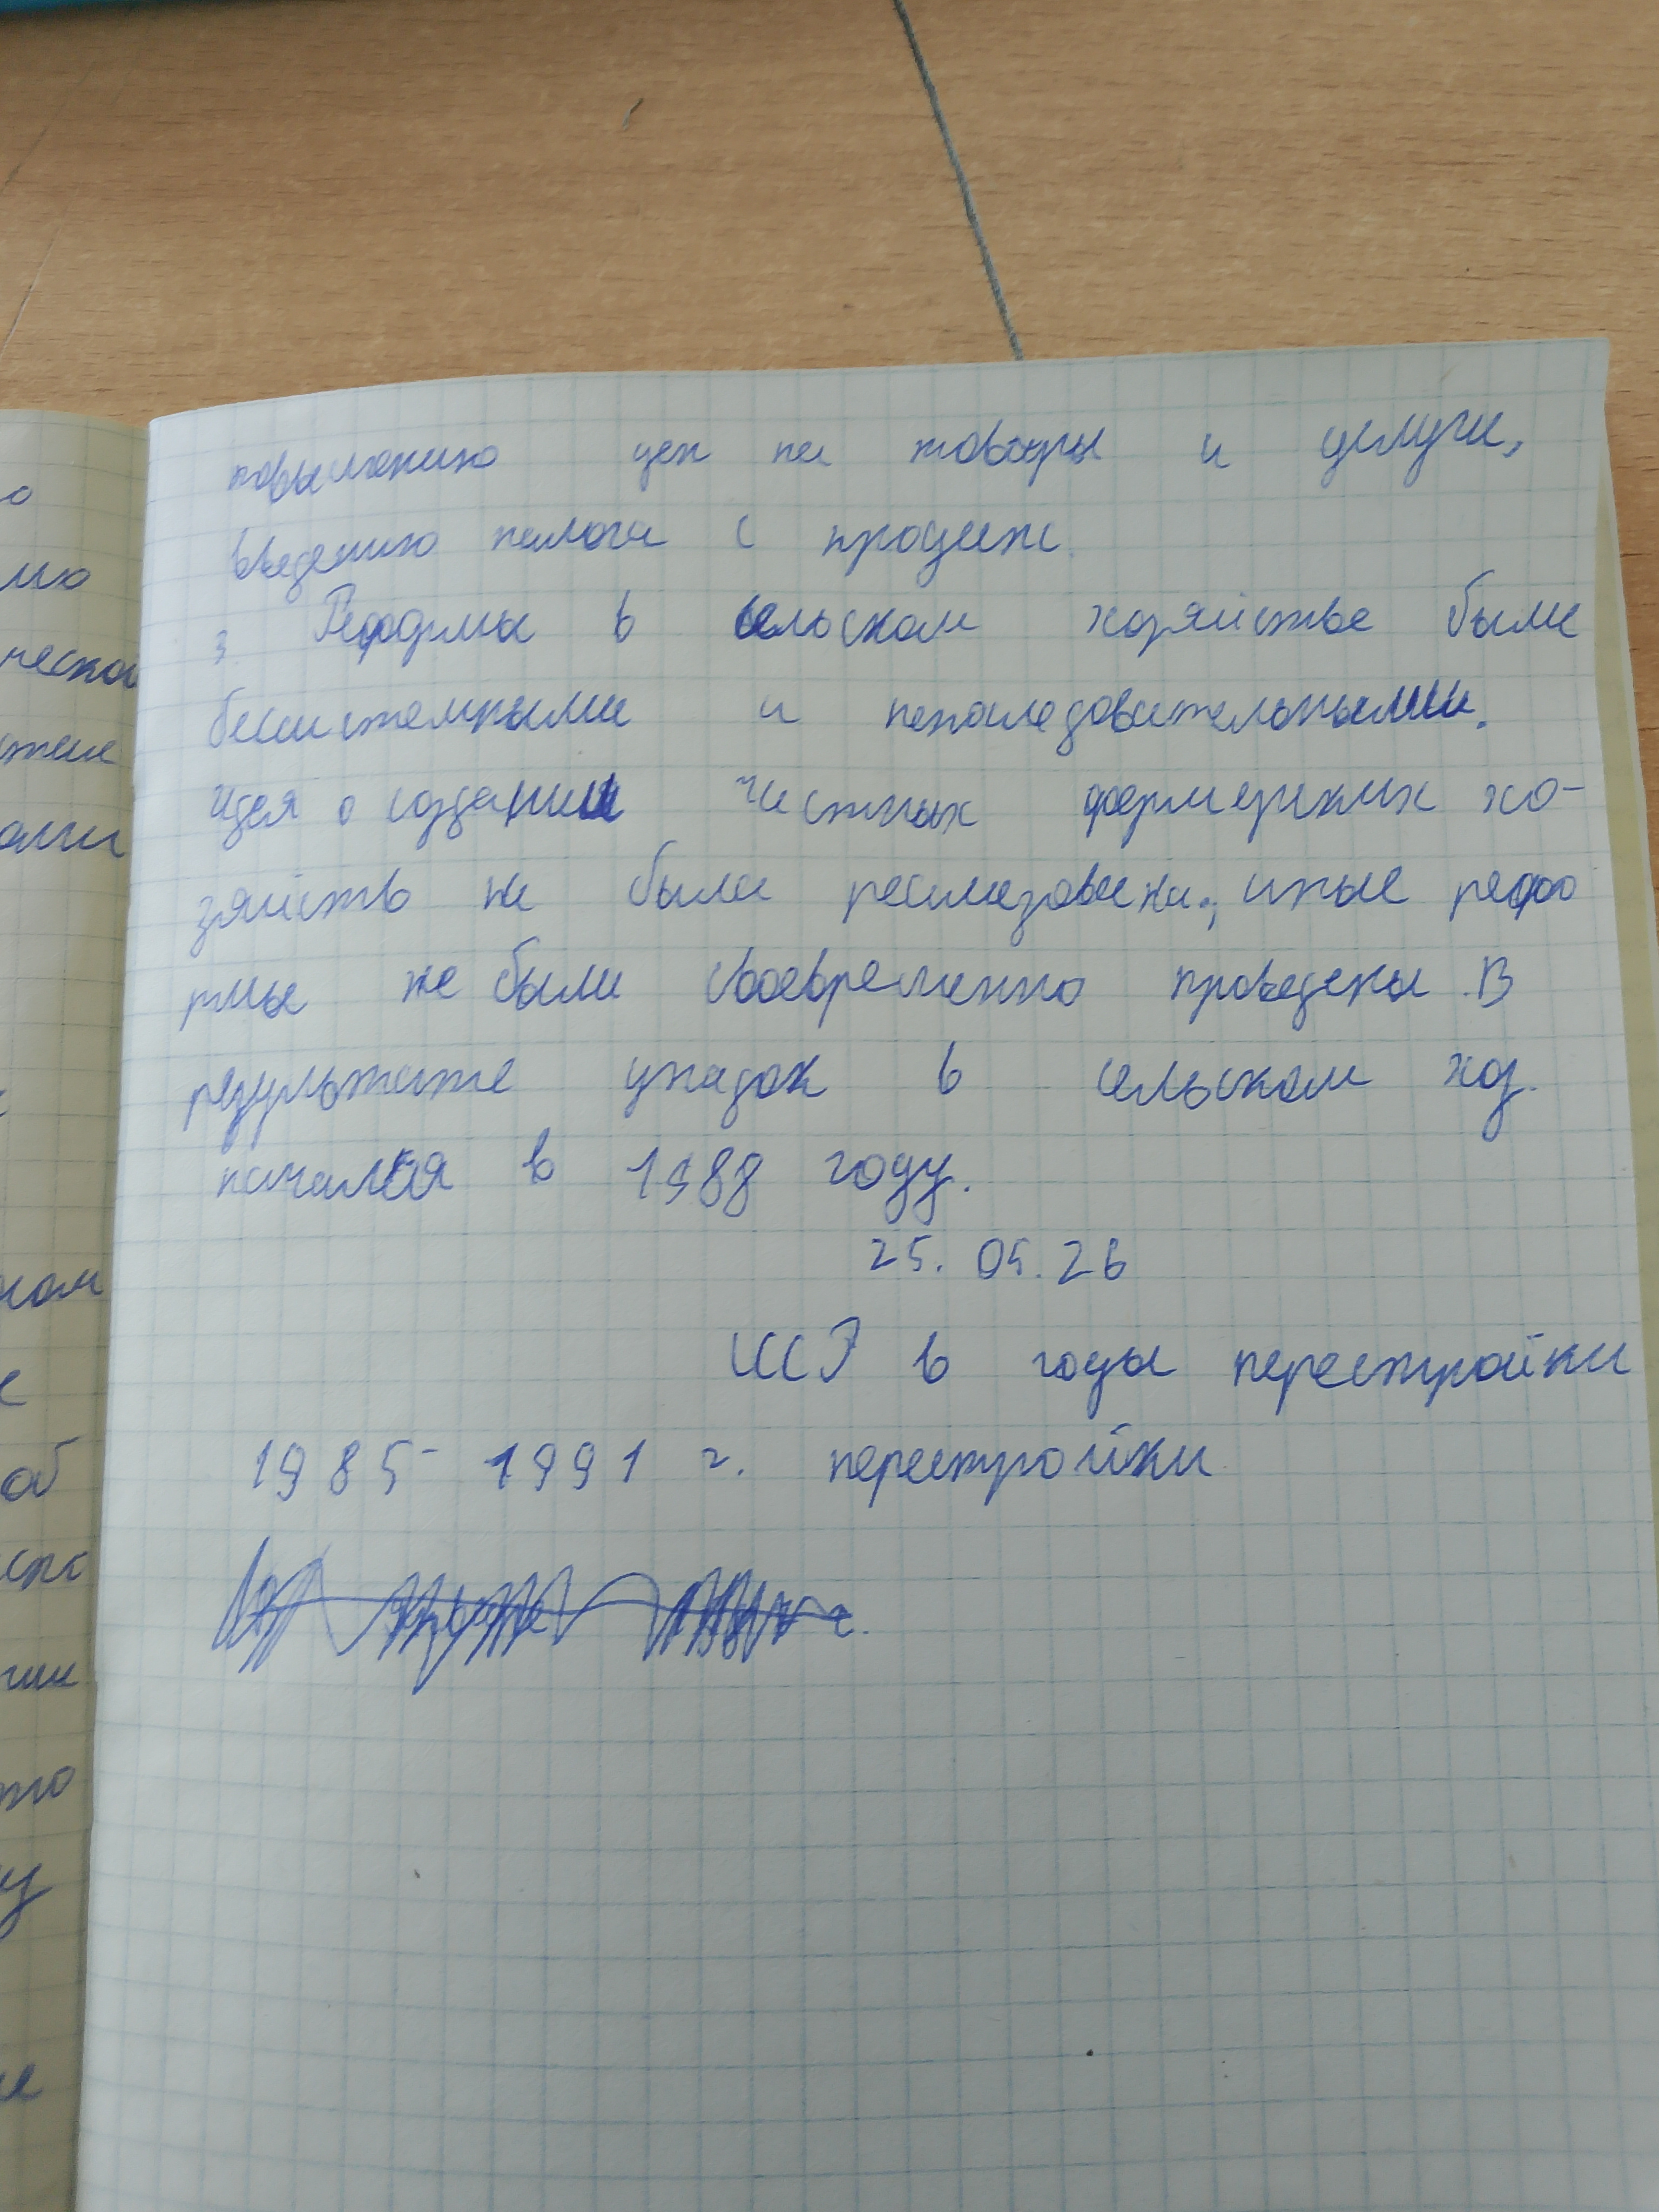 повышению цен на товары и услуги,
введению налога с продаж.
3. Реформы в сельском хозяйстве были
бессистемными и непоследовательными.
Идея о создании частных фермерских хо-
зяйств не была реализована, иные рефо
рмы не были своевременно проведены. В
результате упадок в сельском хоз.
начался в 1988 году.
25.05.26
СССР в годы перестройки
1985-1991 г. перестройки
г.